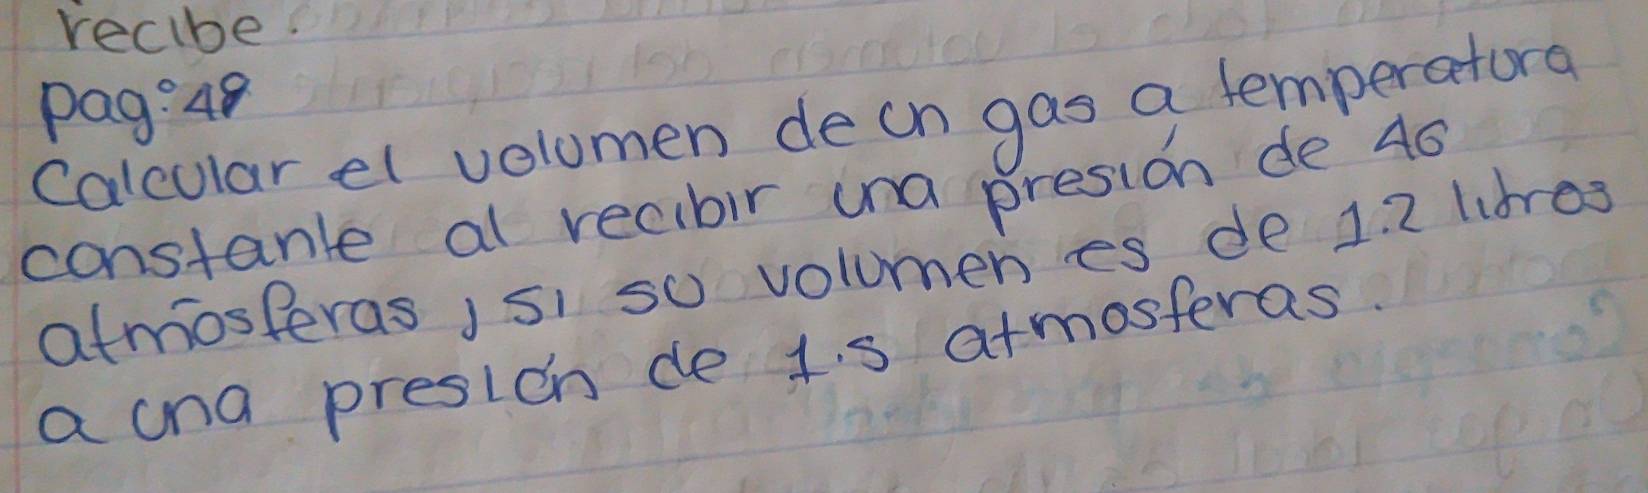 recibe.
pag:49
Calcular el volumen de un gas a temperatura
constante al recibir una presión de 46
atmósferas, si su volumen es de 1.2 litros
a una presión de 1.5 atmosferas.